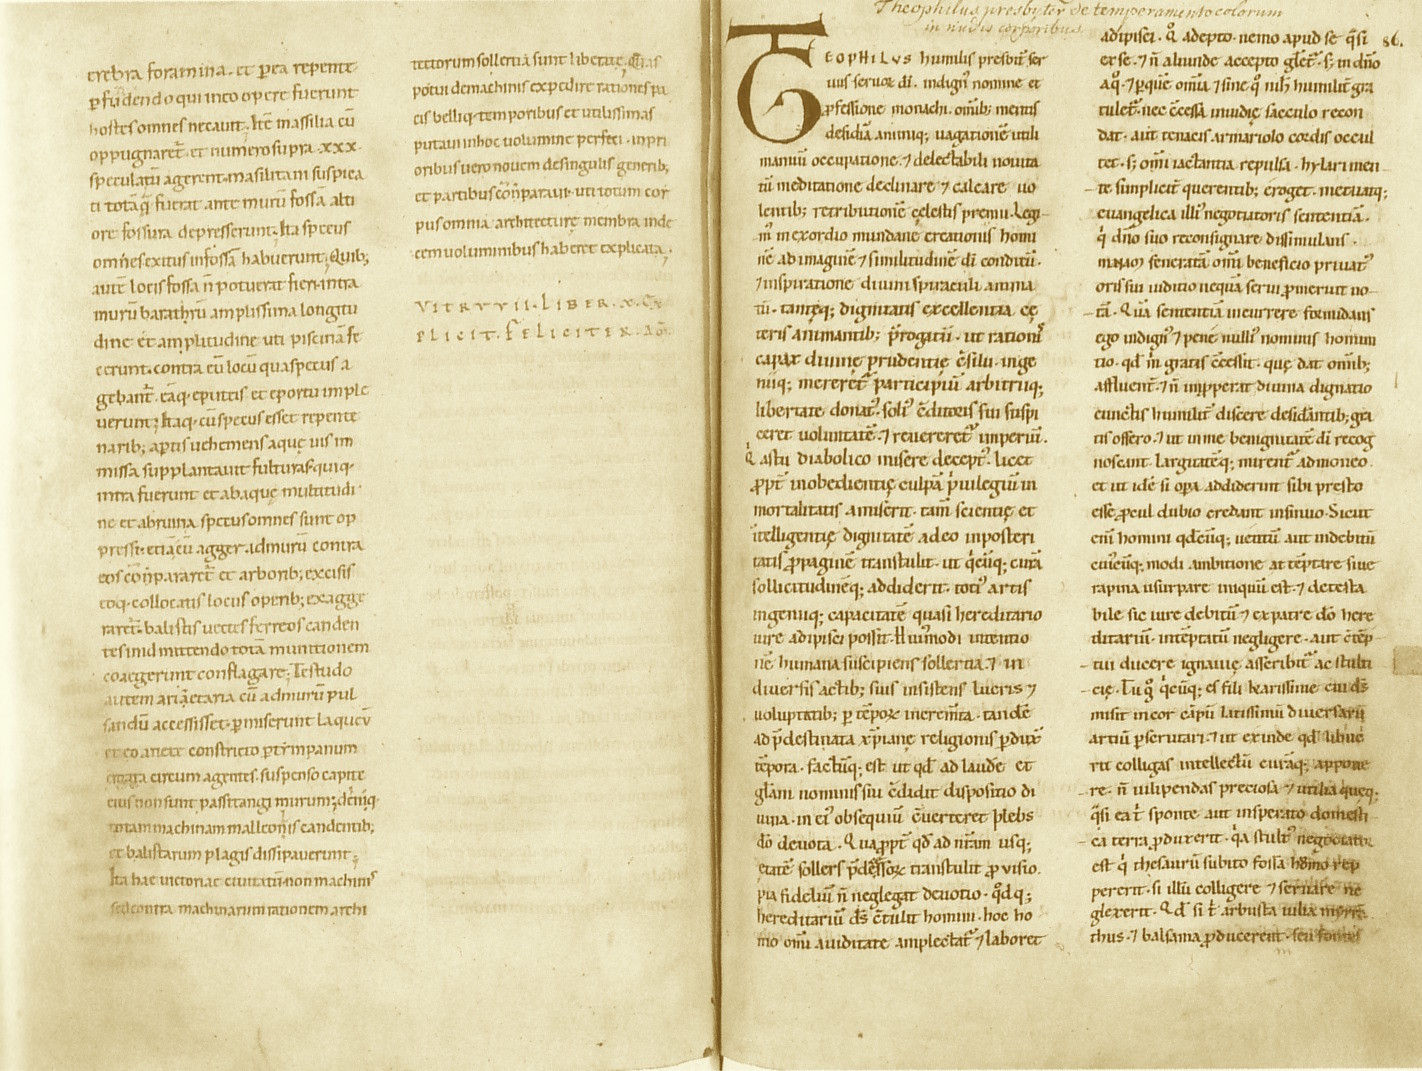 crebra foramina. et p̄ ea repente
p̄fūdendo qui in eo opere fuerunt
hostes omnes necauit. Itē massilia cū
oppugnaret̄. et numero supra .xxx.
speculatū agerent. masilitani suspica
ti totāq; fuerat ante murū fossā alti
ore fossura depresserunt. Ita specus
om̄es exitus in fossā habuerunt. Quib;
autē locis fossa n̄ potuerat fieri. intra
murū barathrū amplissima longitu
dine. et amplitudine uti piscinā fe
cerunt. contra eū locū qua specus a
gebant̄. eāq. e puteis et e portu imple
uerunt. Itaq. cū specus esset repente
narib; aptis uehemens aquę uis im
missa supplantauit fulturas. quiq.
intra fuerunt et ab aquę multitudi
ne et ab ruina specus omnes sunt op
pressi. etiā cū agger. ad murū contra
eos cōpararet̄ et arborib; excisis
eoq. collocatis locus operib; exagge
raret̄. balistis uectes ferreos canden
tes in id mittendo totā munitionem
coaegerunt conflagare. Testudo
autem arietaria cū ad murū pul
sandū accessisset. p̄miserunt laqueū
et eo ariete constricto p̄ tympanum
ergata circum agentes. suspenso capite
eius non sunt passi tangi murum; deniq.
totam machinam malleolis candentib;
et balistarum plagis dissipauerunt.
Ita hae uictoriae ciuitatū non machinis
sed contra machinarum rationem archi
tectorum sollertia sunt liberatę. Quas
potui de machinis expedire rationes pa
cis belliq. temporibus et utilissimas
putaui in hoc uolumine perfeci. in pri
oribus uero nouem de singulis generib;
et partibus cōparaui. uti totum cor
pus omnia architecturę membra in de
cem uoluminibus haberet explicata.
VITRVVII. LIBER. X. EX
PLICIT. FELICITER.
Theophilus presbyter de temperamento colorum
in nudis corporibus
86.
TEOPHILVS humilis presbit̄ ser
uus seruoꝝ dī. indign᾽ nomine et
p̄fessione monachi. om̄ib; mentis
desidiā animiq; uagationē utili
manuū occupatione. ⁊ delectabili nouita
tū meditatione declinare ⁊ calcare uo
lentib; retributionē cęlestis premii. Legi
m᾽ in exordio mundanę creationis homi
nē ad imaginē ⁊ similitudinē dī conditū.
⁊ inspiratione diuini spiraculi anima
tū. tantęq; dignitatis excellentia cę
teris animantib; p̄rogatū. ut rationi᾽
capax diuinę prudentię c̄silii. inge
niiq; mereret̄ participiū arbitriiq;
libertate donat᾽. soli᾽ c̄ditoris sui suspi
ceret uoluntatē. ⁊ reuereret̄ imperiū.
Q̇ astu diabolico misere decept᾽. licet
p̄pt̄ inobedientię culpā p̄uilegiū in
mortalitatis amiserit. tam̄ scientię et
intelligentię dignitatē adeo in posteri
tatis p̄paginē transtulit. ut q̇cūq; curā
sollicitudinēq; addiderit. toti᾽ artis
ingeniiq; capacitatē quasi hereditario
iure adipisci possit. Hui᾽modi intentio
nē humana suscipiens sollertia. ⁊ in
diuersis actib; suis insistens lucris ⁊
uoluptatib; p̄ tēpoꝝ increm̄ta. tandē
ad p̄destinata xp̄ianę religionis p̄dux᾽
tēpora. factūq; est ut qd̄ ad laudē et
glam̄ nominis sui c̄didit dispositio di
uina. in ei᾽ obsequiū c̄uerteret plebs
dō deuota. Qua p̄pt̄ qd̄ ad nr̄am usq;
etatē sollers p̄decessoꝝ transtulit p̄uisio.
pia fideliū n̄ neglegat deuotio. qdq;
hereditariū d̄s c̄tulit homini. hoc ho
mo omi᾽ auiditate amplectat̄ ⁊ laboret
adipisci. Q᾽ adepto. nemo apud se q̇si
ex se. ⁊ n̄ aliunde accepto glet̄. s; in dn̄o
a q᾽. ⁊ p̄ quē om̄ia. ⁊ sine q᾽ nihil humilit̄ gra
tulet̄. nec c̄cessa inuidię sacculo recon
dat. aut tenacis armariolo cordis occul
tet. s; om̄i iactantia repulsa. hylari men
te simplicit̄ querentib; eroget. metuatq;
euangelicā illi᾽ negotiatoris sententiā.
q̇ dn̄o suo reconsignare dissimulans.
feneratā om̄i beneficio priuat᾽
oris sui iuditio nequā serui p̄meruit no
tā. Quā sententiā incurrere formidans
ego indign᾽ ⁊ pene nulli᾽ nominis homun
tio. qd̄ m̄ gratis c̄cessit. quę dat om̄ib;
affluent̄. ⁊ n̄ inp̄perat diuina dignatio
cunctis humilit̄ discere desid̄antib; gra
tis offero. ⁊ ut in me benignitatē dī recog
noscant. largitatēq; mirent̄ admoneo.
et ut idē si opa addiderint sibi presto
esse p̄cul dubio credant insinuo. Sicut
eni homini qdcūq; uetitū aut indebitū
cui᾽cūq; modi ambitione attēptare siue
rapina usurpare iniquū est. ⁊ detesta
bile sic iure debitū ⁊ ex patre dō here
ditariū. intēptatū negligere. aut c̄tēp
tui ducere ignauię asscribit̄ ac stulti
cię. Tu g᾽ q̇cūq; es fili karissime cui d̄s
misit in cor cāpū latissimū diuersarū
artiū p̄scrutari. ⁊ ut exinde qd̄ libue
rit colligas intellectū curāq; appone
re. n̄ uilipendas preciosa ⁊ utilia quęq;
q̇si ea t̄ sponte aut insperato domesti
ca terra p̄duxerit. q̇a stult᾽ negotiator
est q̇ thesaurū subito fossa humo rep
pererit. si illū colligere ⁊ seruare ne
glexerit. Qd̄ si t̄ arbusta uilia myrrā.
thus. ⁊ balsama p̄ducerent. seu fontes